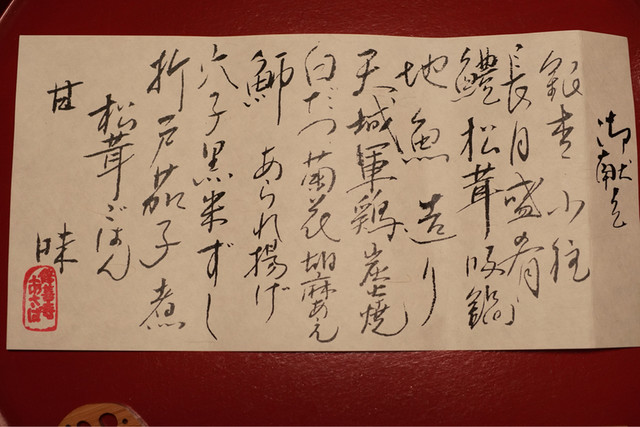 御献立
銀杏 小柱
長月盛肴
鱧松茸吸鍋
地魚造り
天城軍鶏炭火焼
白だつ菊花胡麻あえ
鰤 あられ揚げ
穴子黒米ずし
折戸茄子煮
松茸ごはん
甘味
修善寺
あさば